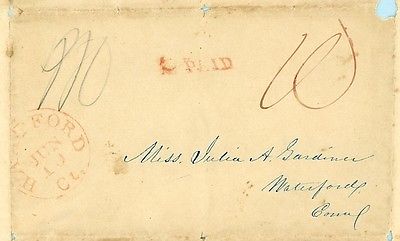 PAID
10
HARTFORD
JUN
10
Ct.
Miss. Julia A. Gardiner
Waterford,
Conn